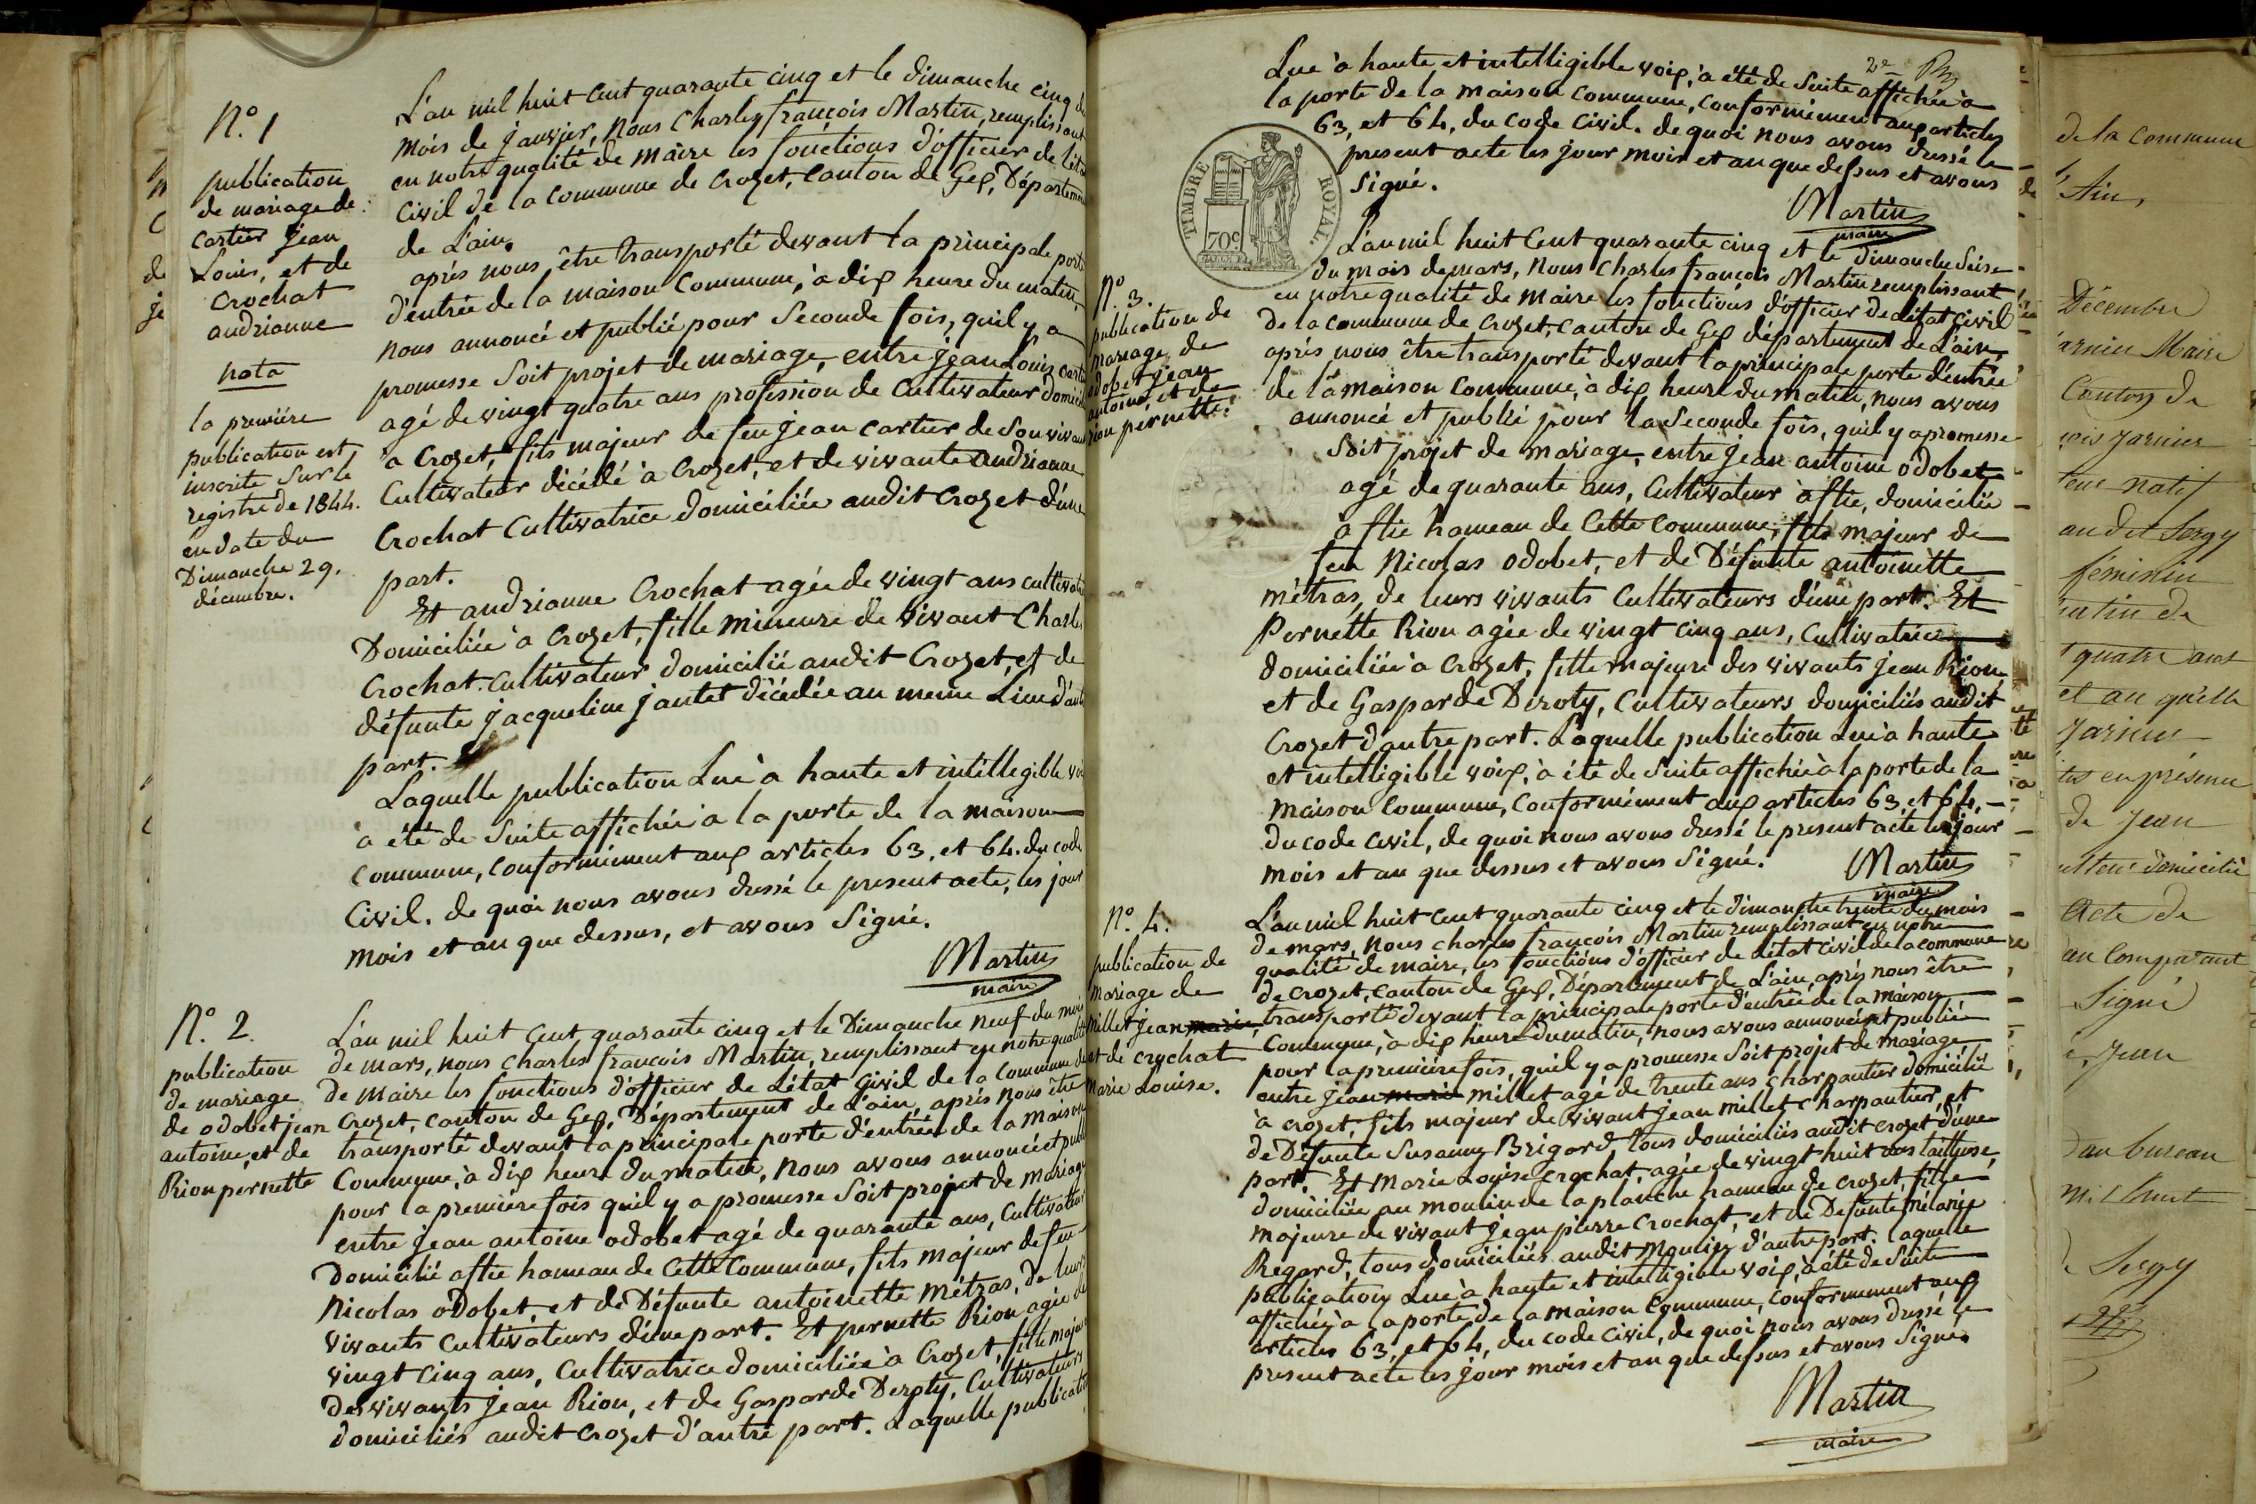 N.° 1
publication
de mariage de
Cartier Jean
Louis, et de
Crochat
andrianne
nota
la premiére
publication est
inscrite Sur le
registre de 1844.
en date du
Dimanche 29.
décembre.
L'an mil huit Cent quarante cinq et le dimanche cinq du
mois de janvier, nous Charles françois Martin, remplissant
en notre qualité de maire les fonctions d'officier de l'état
Civil de la commune de Crozet, Canton de Gex, Département
de L'ain.
aprés nous être transporté devant la principale porte
d'entrée de la maison Commune, à dix heure du matin,
nous annoncé et publié pour Seconde fois, quil y a
promesse Soit projet de mariage, entre jean Louis Cartier
agé de vingt quatre ans profession de Cultivateur domicilié
a Crozet, fils majeur de feu jean Cartier de Son vivant
Cultivateur décédé à Crozet, et de vivante andrianne
Crochat Cultivatrice domiciliée audit Crozet d'une
part.
Et andrianne Crochat agée de vingt ans cultivatrice
Domiciliée à Crozet, fille mineure de vivant Charles
Crochat Cultivateur domicilié audit Crozet, et de
défunte jacqueline jantet décédée au meme Lieu d'autre
part.
Laquelle publication Lue à haute et intillegible voix
a été de Suite affichée a la porte de la maison
Commune, Conformément aux articles 63. et 64. du code
Civil. de quoi nous avons dressé le present acte, les jour
mois et an que dessus, et avons Signé.
Martin
maire
N.° 2.
publication
de mariage
de odobet jean
antoine, et de
Rion pernette
L'an mil huit Cent quarante cinq et le Dimanche neuf du mois
de mars, nous Charles françois Martin, remplissant en notre qualité
de maire les fonctions d'officier de L'état Civil de la Commune de
Crozet, canton de Gex, Département de L'ain, aprés nous être
transporté devant la principale porte d'entrée de la maison
Commune, à dix heure du matin, nous avons annoncé et publié
pour la premiére fois quil y a promesse Soit projet de mariage
entre jean antoine odobet agé de quarante ans, Cultivateur
Domicilié aflie hameau de Cette Commune, fils majeur de feu
nicolas odobet, et de Défunte antoinette métras, de leurs
vivants Cultivateurs d'une part. Et pernette Rion agée de
vingt Cinq ans, Cultivatrice domiciliée à Crozet, fille majeure
des vivants jean Rion, et de Gasparde Deroty, Cultivateurs
domiciliés audit Crozet d'autre part. Laquelle publication
2e
Lue à haute et intelligible voix, à été de Suite affichée à
la porte de la maison commune, Conformément aux articles
63, et 64, du Code Civil. de quoi nous avons dressé le
present acte les jour mois et an que dessus et avons
Signé.
Martin
maire
TIMBRE ROYAL.
70c.
N.° 3.
publication de
mariage de
odobet jean
antoine, et de
rion pernette.
L'an mil huit Cent quarante cinq et le dimanche Seise
du mois de mars, nous Charles françois Martin remplissant
en notre qualité de maire les fonctions d'officier de L'état Civil
de la commune de Crozet, canton de Gex département de L'ain,
aprés nous être transporté devant la principale porte d'entrée
de la maison Commune, à dix heure du matin, nous avons
annoncé et publié pour la Seconde fois, quil y a promesse
Soit projet de mariage, entre jean antoine odobet
agé de quarante ans, Cultivateur à flie, domicilié
à flie hameau de Cette Commune, fils majeur de
feu Nicolas odobet, et de Défunte antoinette
métras, de leurs vivants Cultivateurs d'une part. Et
Pernette Rion agée de vingt cinq ans, Cultivatrice
domiciliée à Crozet, fille majeure des vivants jean Rion,
et de Gasparde Deroty, Cultivateurs domiciliés audit
Crozet d'autre part. Laquelle publication Lue à haute
et intelligible voix, à été de Suite affichée à la porte de la
maison Commune, Conformément aux articles 63, et 64,
du code Civil, de quoi nous avons dressé le present acte les jour
mois et an que dessus et avons Signé.
Martin
maire
N.° 4.
publication de
mariage de
Millet jean marie,
et de crochat
Marie Louise.
L'an mil huit Cent quarante cinq et le dimanche trente du mois
de mars, nous charles françois Martin remplissant en notre
qualité de maire, les fonctions d'officier de L'état Civil de la commune
de Crozet, Canton de Gex, Département de L'ain, aprés nous être
transporté devant la principale porte d'entrée de la maison
Commune, à dix heure du matin, nous avons annoncé et publié
pour la premiére fois, quil y a promesse Soit projet de mariage
entre jean marie millet agé de trente ans charpantier domicilié
à Crozet, fils majeur de vivant jean millet Charpantier, et
de Défunte Susanne Brigard tous domiciliés audit crozet d'une
part. Et Marie Louise Crochat, agée de vingt huit ans tailleuse,
domiciliée au moulin de la planche hameau de Crozet, fille
majeure de vivant jean pierre Crochat, et de Défunte mélanie
Regard, tous domiciliés audit Moulin d'autre part. Laquelle
publication Lue à haute et intelligible voix, à été de Suite
affichée à la porte de la maison Commune, Conformément aux
articles 63, et 64, du Code Civil, de quoi nous avons dressé le
present acte les jour mois et an que dessus et avons Signé.
Martin
maire
de la Commune
l'Ain,
Décembre
Maire
Canton de
natif
au dit Sergy
féminin
quatre ans
et an qu'elle
en présence
de Jean
domicilié
Acte de
au Comparant
Signé
Jean
au bureau
mil huit
Sergy